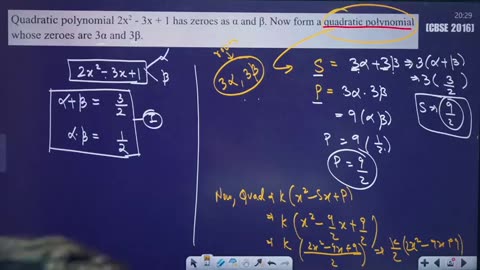 Quadratic polynomial 2x² - 3x + 1 has zeroes as α and β. Now form a quadratic polynomial
whose zeroes are 3α and 3β.
[CBSE 2016]
20:29
2x² - 3x + 1
α
β
α+β = 3/2
α·β = 1/2
I
3α, 3β
S = 3α+3β ⇒ 3(α+β)
⇒ 3(3/2)
S ⇒ 9/2
P = 3α·3β
= 9(αβ)
P = 9(1/2)
P = 9/2
Now, Quad ⇒ K(x²-Sx+P)
⇒ K(x² - 9/2x + 9/2)
⇒ K((2x²-9x+9)/2) ⇒ K/2(2x²-9x+9)